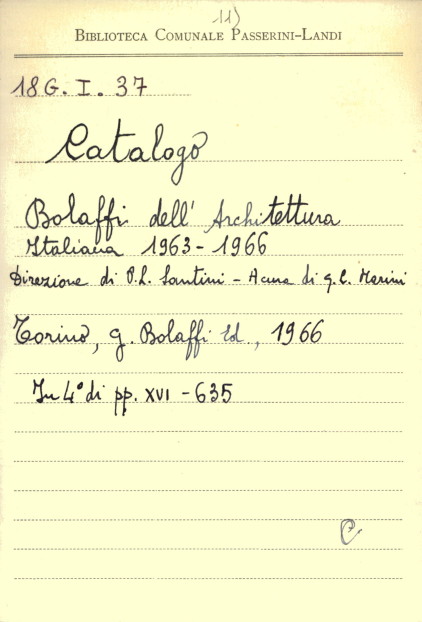 11)
BIBLIOTECA COMUNALE PASSERINI-LANDI
18G. I. 37
Catalogo
Bolaffi dell' Architettura
Italiana 1963-1966
Direzione di P.L. Santini - A cura di G.C. Marini
Torino, G. Bolaffi Ed., 1966
In 4° di pp. XVI - 635